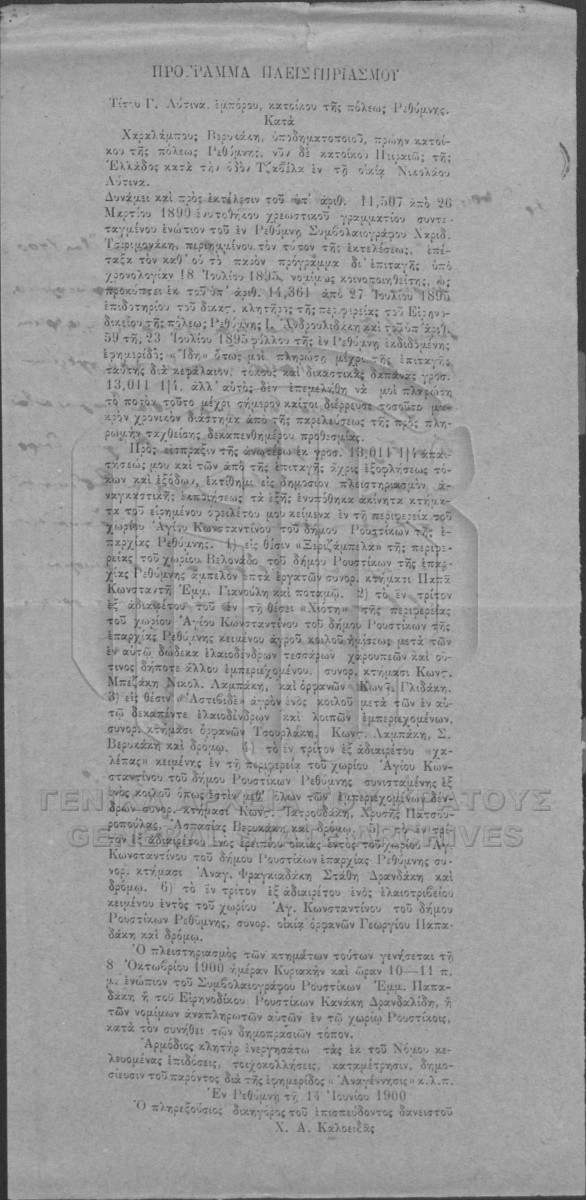 ΠΡΟΓΡΑΜΜΑ ΠΛΕΙΣΤΗΡΙΑΣΜΟΥ
Τίτου Γ. Λύτινα, ἐμπόρου, κατοίκου τῆς πόλεως Ρεθύμνης.
Κατὰ
Χαραλάμπους Βερυκάκη, ὑποδηματοποιοῦ, πρώην κατοί-
κου τῆς πόλεως Ρεθύμνης, νῦν δὲ κατοίκου Πειραιῶς τῆς
Ἑλλάδος κατὰ τὴν ὁδὸν Τζαβέλα ἐν τῇ οἰκίᾳ Νικολάου
Λύτινα.
Δυνάμει καὶ πρὸς ἐκτέλεσιν τοῦ ὑπ' ἀριθ. 11,507 ἀπὸ 26
Μαρτίου 1890 ἐνυποθήκου χρεωστικοῦ γραμματίου συντε-
ταγμένου ἐνώπιον τοῦ ἐν Ρεθύμνῃ Συμβολαιογράφου Χαριδ.
Τσιριμονάκη, περιημμένου τὸν τύπον τῆς ἐκτελέσεως, ἐπέ-
ταξα τὸν καθ' οὗ τὸ παρὸν πρόγραμμα δι' ἐπιταγῆς ὑπὸ
χρονολογίαν 18 Ἰουλίου 1895, νομίμως κοινοποιηθείσης, ὡς
προκύπτει ἐκ τοῦ ὑπ' ἀριθ. 14,361 ἀπὸ 27 Ἰουλίου 1895
ἐπιδοτηρίου τοῦ δικαστ. κλητῆρος τῆς περιφερείας τοῦ Εἰρηνο-
δικείου τῆς πόλεως Ρεθύμνης Ι. Ἀνδρουλιδάκη καὶ τοῦ ὑπ' ἀριθ.
59 τῆς 23 Ἰουλίου 1895 φύλλου τῆς ἐν Ρεθύμνῃ ἐκδιδομένης
ἐφημερίδος «Ἴδη» ὅπως μοὶ πληρώσῃ μέχρι τῆς ἐπιταγῆς
ταύτης διὰ κεφάλαιον, τόκους καὶ δικαστικὰς δαπάνας γροσ.
13,011 1|4, ἀλλ' αὐτὸς δὲν ἐπεμελήθη νὰ μοὶ πληρώσῃ
τὸ ποσὸν τοῦτο μέχρι σήμερον καίτοι διέρρευσε τοσοῦτο μα-
κρὸν χρονικὸν διάστημα ἀπὸ τῆς παρελεύσεως τῆς πρὸς πλη-
ρωμὴν ταχθείσης δεκαπενθημέρου προθεσμίας.
Πρὸς εἴσπραξιν τῆς ἀνωτέρω ἐκ γροσ. 13,011 1|4 ἀπαι-
τήσεώς μου καὶ τῶν ἀπὸ τῆς ἐπιταγῆς ἄχρις ἐξοφλήσεως τό-
κων καὶ ἐξόδων, ἐκτίθημι εἰς δημόσιον πλειστηριασμὸν ἀ-
ναγκαστικῆς ἐκποιήσεως τὰ ἑξῆς ἐνυπόθηκα ἀκίνητα κτήμα-
τα τοῦ εἰρημένου ὀφειλέτου μου κείμενα ἐν τῇ περιφερείᾳ τοῦ
χωρίου Ἁγίου Κωνσταντίνου τοῦ δήμου Ρουστίκων τῆς ἐ-
παρχίας Ρεθύμνης. 1) εἰς θέσιν «Ξεριζάμπελα» τῆς περιφε-
ρείας τοῦ χωρίου Βελονάδο τοῦ δήμου Ρουστίκων τῆς ἐπαρ-
χίας Ρεθύμνης ἄμπελον ἑπτὰ ἐργατῶν συνορ. κτήμασι Παπᾶ
Κωνσταντῆ Ἐμμ. Γιανούλη καὶ ποταμῷ. 2) τὸ ἓν τρίτον
ἐξ ἀδιαιρέτου τοῦ ἐν τῇ θέσει «Χιότη» τῆς περιφερείας
τοῦ χωρίου Ἁγίου Κωνσταντίνου τοῦ δήμου Ρουστίκων τῆς
ἐπαρχίας Ρεθύμνης κειμένου ἀγροῦ κοιλοῦ ἡμίσεως μετὰ τῶν
ἐν αὐτῷ δώδεκα ἐλαιοδένδρων τεσσάρων χαρουπεῶν καὶ οὕ-
τινος δήποτε ἄλλου ἐμπεριεχομένου, συνορ. κτήμασι Κωνσ.
Μπεζάκη Νικολ. Λαμπάκη, καὶ ὀρφανῶν Κωνσ. Γλιδάκη.
3) εἰς θέσιν «Ἀστιβιδὲ» ἀγρὸν ἑνὸς κοιλοῦ μετὰ τῶν ἐν αὐ-
τῷ δεκαπέντε ἐλαιοδένδρων καὶ λοιπῶν ἐμπεριεχομένων,
συνορ. κτήμασι ὀρφανῶν Τσουρλάκη, Κωνσ. Λαμπάκη, Σ.
Βερυκάκη καὶ δρόμῳ. 4) τὸ ἓν τρίτον ἐξ ἀδιαιρέτου «χα-
λέπας» κειμένης ἐν τῇ περιφερείᾳ τοῦ χωρίου Ἁγίου Κων-
σταντίνου τοῦ δήμου Ρουστίκων Ρεθύμνης συνισταμένης ἐξ
ἑνὸς κοιλοῦ ὅπως ἐστὶν μεθ' ὅλων τῶν ἐμπεριεχομένων δέν-
δρων συνορ. κτήμασι Κωνσ. Ἰατρουδάκη, Χρυσῆς Πατσου-
ροπούλας, Ἀσπασίας Βερυκάκη καὶ δρόμῳ. 5) τὸ ἓν τρί-
τον ἐξ ἀδιαιρέτου ἑνὸς ἐρειπίου οἰκίας ἐντὸς τοῦ χωρίου Ἁγ.
Κωνσταντίνου τοῦ δήμου Ρουστίκων ἐπαρχίας Ρεθύμνης συ-
νορ. κτήμασι Ἀναγ. Φραγκιαδάκη Στάθη Δρανδάκη καὶ
δρόμῳ. 6) τὸ ἓν τρίτον ἐξ ἀδιαιρέτου ἑνὸς ἐλαιοτριβείου
κειμένου ἐντὸς τοῦ χωρίου Ἁγ. Κωνσταντίνου τοῦ δήμου
Ρουστίκων Ρεθύμνης, συνορ. οἰκίᾳ ὀρφανῶν Γεωργίου Παπα-
δάκη καὶ δρόμῳ.
Ὁ πλειστηριασμὸς τῶν κτημάτων τούτων γενήσεται τῇ
8 Ὀκτωβρίου 1900 ἡμέραν Κυριακὴν καὶ ὥραν 10—11 π.
μ. ἐνώπιον τοῦ Συμβολαιογράφου Ρουστίκων Ἐμμ. Παπα-
δάκη ἢ τοῦ Εἰρηνοδίκου Ρουστίκων Κανάκη Δρανδαλίδη, ἢ
τῶν νομίμων ἀναπληρωτῶν αὐτῶν ἐν τῷ χωρίῳ Ρουστίκοις,
κατὰ τὸν συνήθει τῶν δημοπρασιῶν τόπον.
Ἁρμόδιος κλητὴρ ἐνεργησάτω τὰς ἐκ τοῦ Νόμου κε-
λευομένας ἐπιδόσεις, τοιχοκολλήσεις, καταμέτρησιν, δημο-
σίευσιν τοῦ παρόντος διὰ τῆς ἐφημερίδος «Ἀναγέννησις» κ.λ.π.
Ἐν Ρεθύμνῃ τῇ 14 Ἰουνίου 1900
Ὁ πληρεξούσιος δικηγόρος τοῦ ἐπισπεύδοντος δανειστοῦ
Χ. Α. Καλοειδᾶς